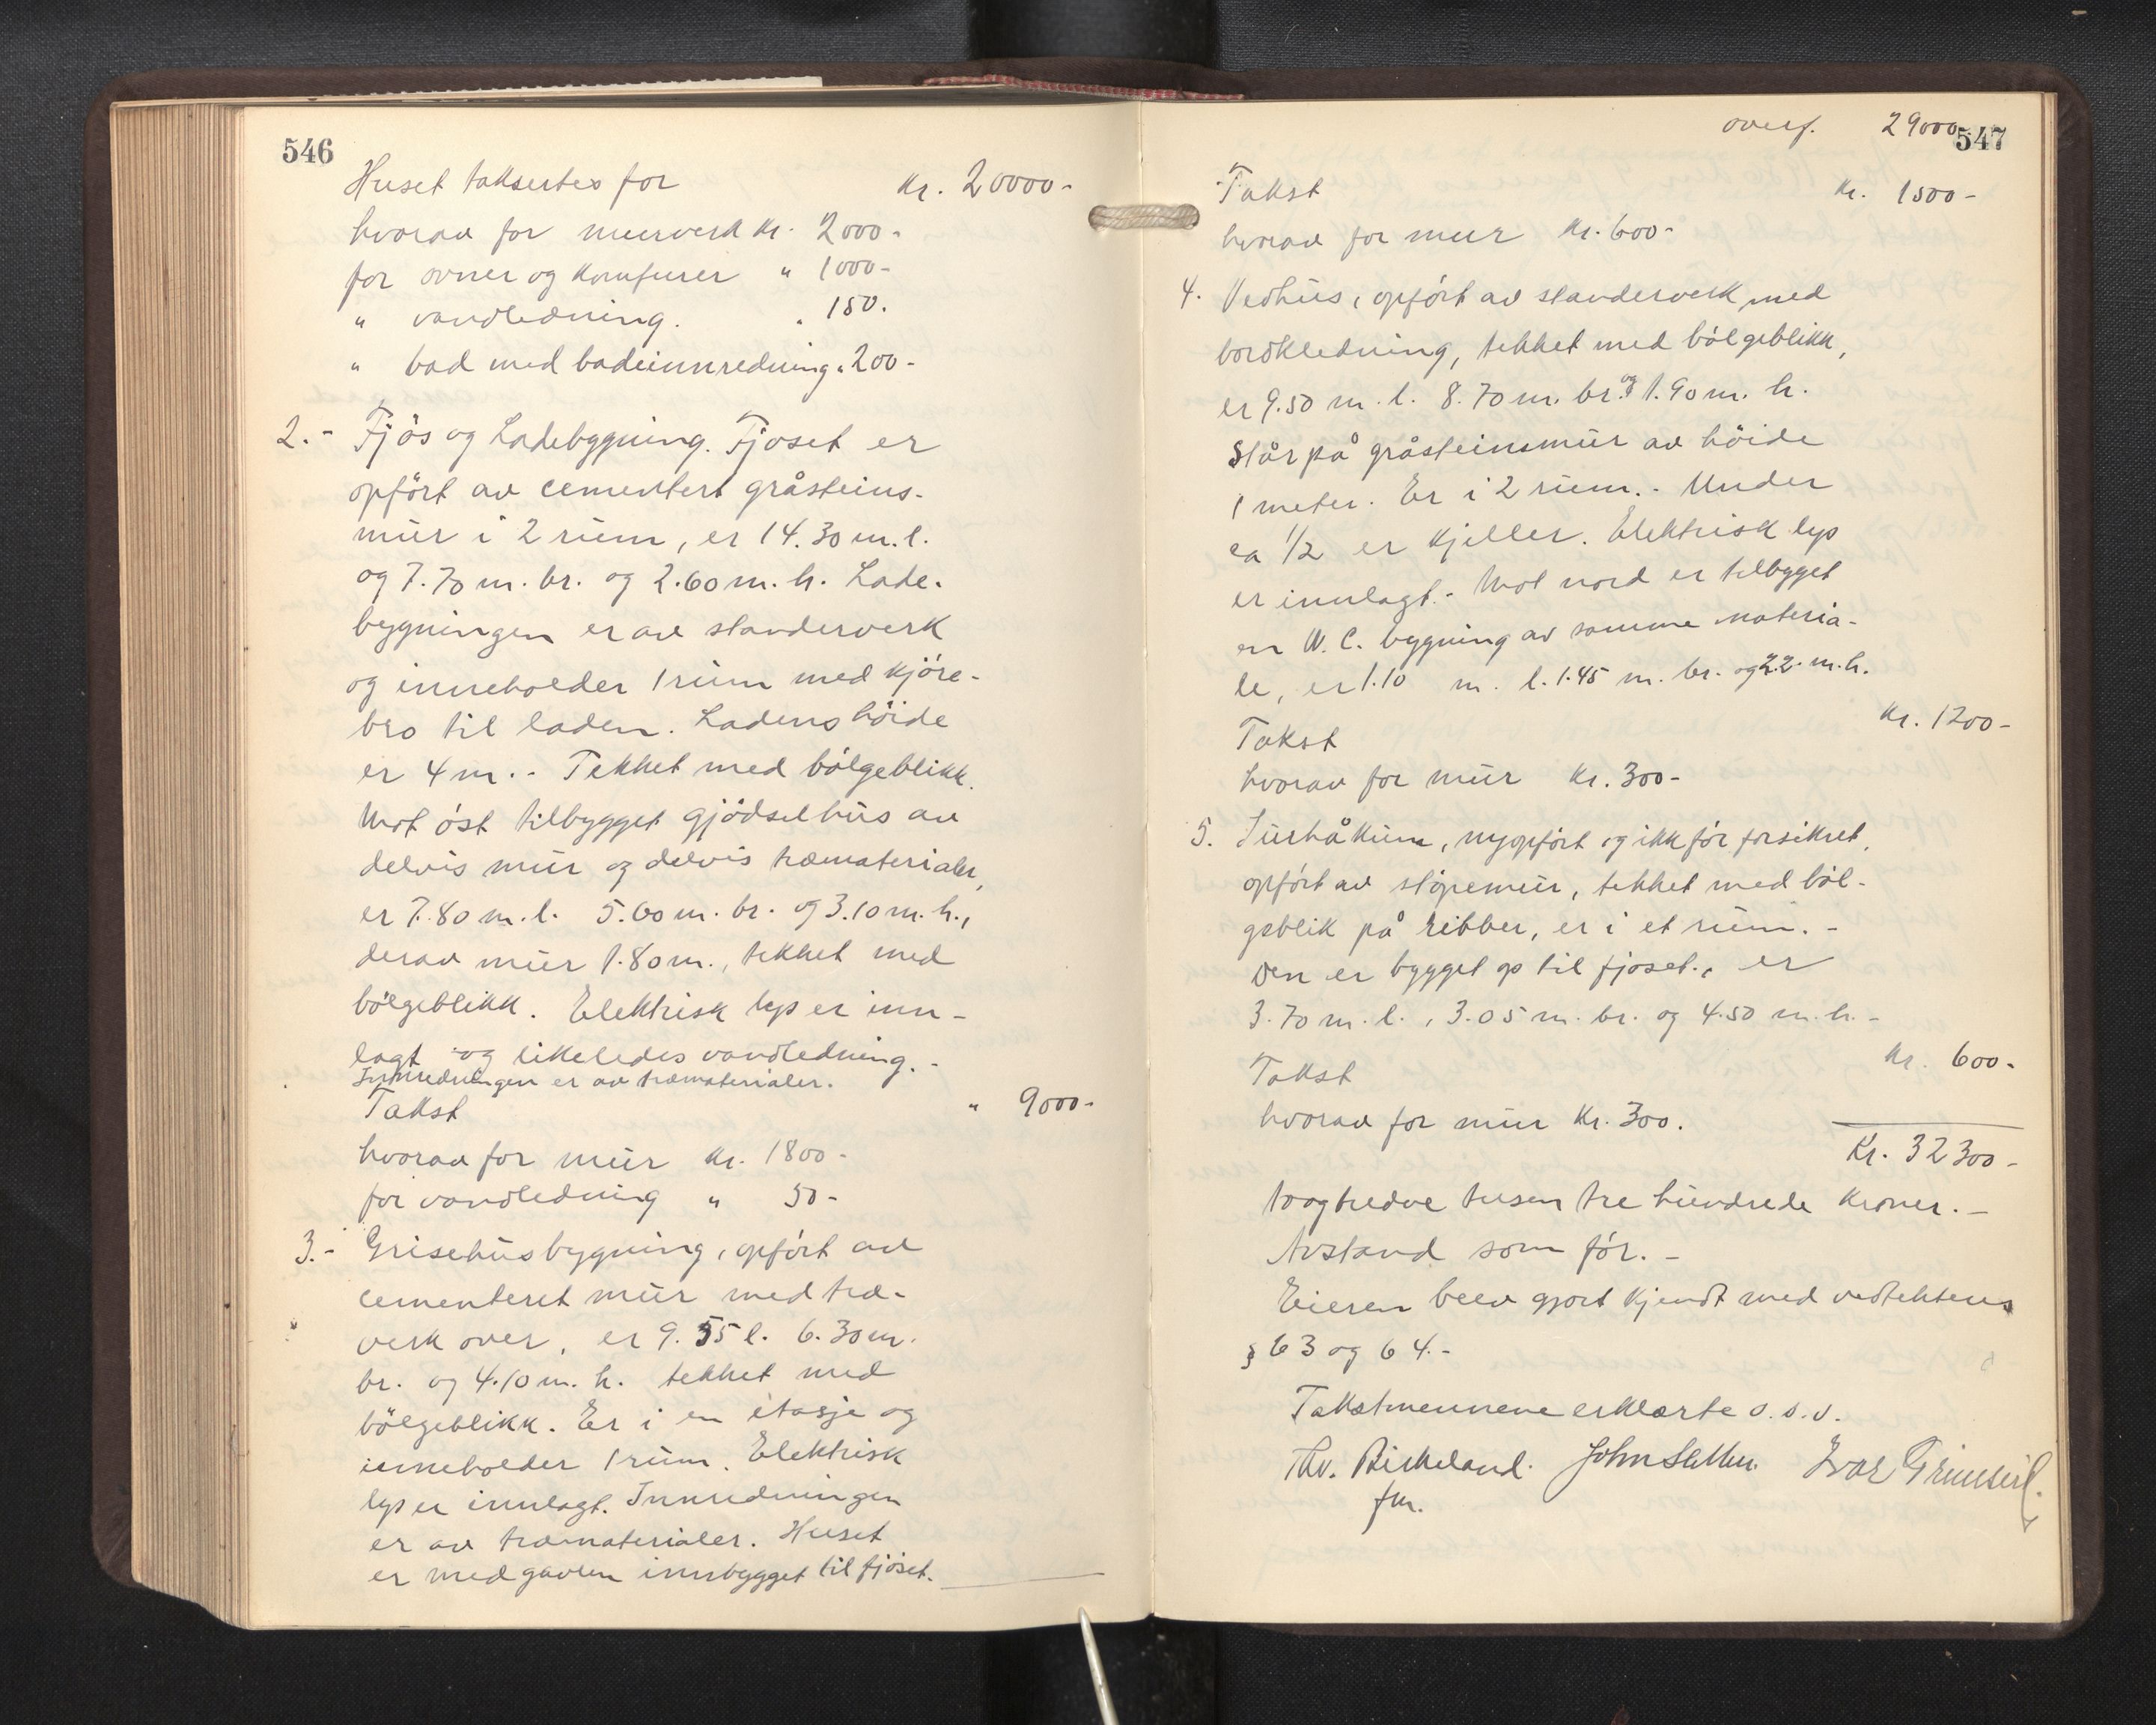 546
Huset taksertes for kr. 20000-
hvorav for murverk kr. 2000-
for ovner og komfurer " 1000-
" vandledning. " 150.
" bad med badeinnredning " 200-
2.- Fjös og Ladebygning. Fjoset er
opfört av cementert gråsteins-
mur i 2 rum, er 14.30 m. l.
og 7.70 m. br. og 2.60 m. h. Lade-
bygningen er av standerverk
og inneholder 1 rum med kjöre-
bro til laden. Ladens höide
er 4 m.- Tekket med bölgeblikk.
Mot öst tilbygget gjödselhus av
delvis mur og delvis træmaterialer,
er 7.80 m. l. 5.60 m. br. og 3.10 m. h.,
derav mur 1.80 m., tekket med
bölgeblikk. Elektrisk lys er inn-
lagt og likeledes vandledning.-
Innredningen er av træmaterialer.
Takst " 9000-
hvorav for mur kr. 1800-
for vandledning " 50-
3.- Grisehusbygning, opfört av
cementeret mur med træ-
verk over, er 9.55 l. 6.30 m.
br. og 4.10 m. h. tekket med
bölgeblikk. Er i en etasje og
inneholder 1 rum. Elektrisk
lys er innlagt. Innredningen
er av træmaterialer. Huset
er med gavlen innbygget til fjöset.
overf. 29000
547
Takst kr. 1500-
hvorav for mur kr. 600-
4. Vedhus, opfört av standerverk med
bordkledning, tekket med bölgeblikk,
er 9.50 m. l. 8.70 m. br. og 1.90 m. h.
Står på gråsteinsmur av höide
1 meter. Er i 2 rum.- Under
ca 1/2 er kjeller. Elektrisk lys
er innlagt.- Mot nord er tilbygget
en W.C. bygning av samme materia-
le, er 1.10 m. l. 1.45 m. br. og 2.2 m. h.
Takst kr. 1200-
hvorav for mur kr. 300-
5. Surhåkum, nyopfört og ikke för forsikret,
opfört av stöpemur, tekket med böl-
geblik på ribber, er i et rum.-
Den er bygget op til fjoset., er
3.70 m. l., 3.05 m. br. og 4.50 m. h.-
Takst kr. 600-
hvorav for mur kr. 300.
Kr. 32300-
toogtredve tusen tre hundrede kroner.-
Avstand som för.-
Eieren blev gjort kjendt med vedtektens
§ 63 og 64.-
Takstmennene erklærte o.s.v.
Thv. Birkeland. John Sletten. Ivar Grimseid.
fm.